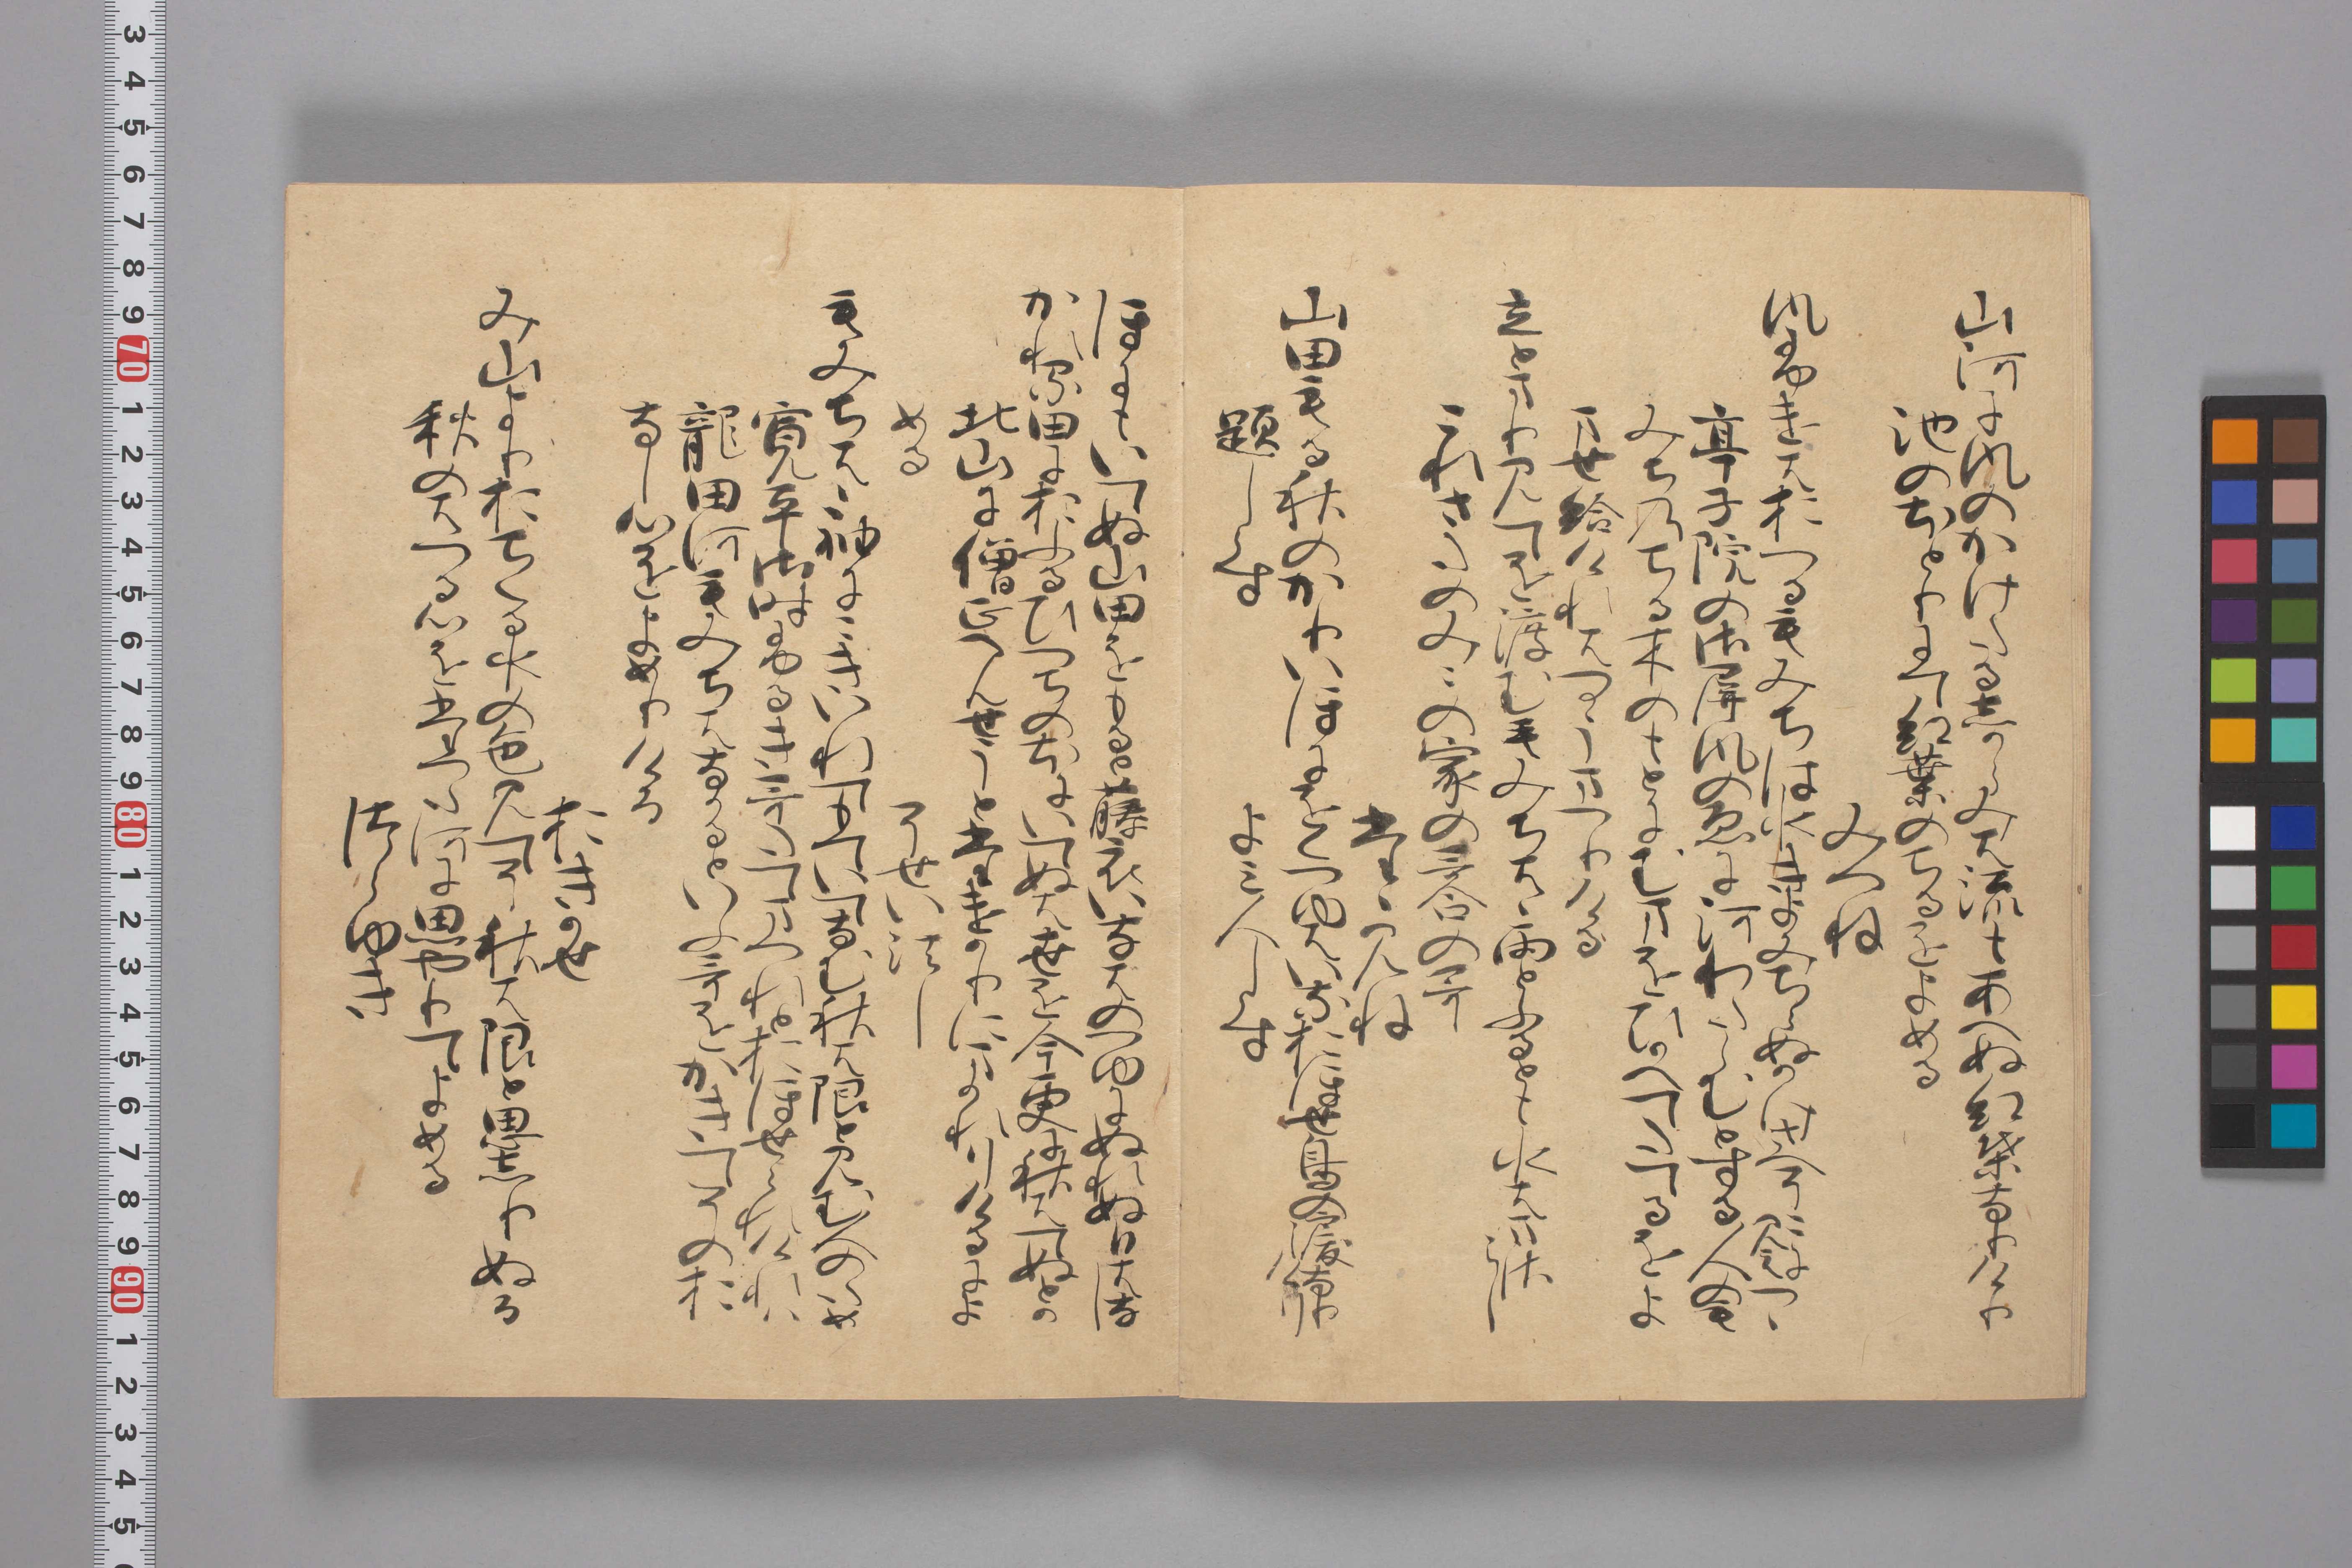 山河に風のかけたるしからみは流もあへぬ紅葉なりけり
池のほとりにて紅葉のちるをよめる
みつね
風ふけはおつるもみちは水きよみちらぬかけさへ底に見えつゝ
亭子院の御屏風の絵に河わたらむとする人のも
みちのちる木のもとにむまをひかへてたてるをよ
ませ給けれはつかうまつりける
立とまりみてを渡むもみちはゝ雨とふるとも水はまさらし
これさたのみこの家の哥合の哥
たゝみね
山田もる秋のかりほにをく露はいなおほせ鳥の涙なりけり
題しらす　よみ人しらす
ほにもいてぬ山田をもると藤衣いなはの露にぬれぬ日はなし
かれる田におふるひつちのほにいてぬは世を今更に秋はてぬとか
北山に僧正へんせうとたけかりにまかれりけるによ
める
そせい法し
もみちはゝ袖にこきいれてもていてなむ秋は限とみむ人のため
寛平御時ふるき哥たてまつれとおほせられけれは
龍田河もみちはなかるといふ哥をかきてそのお
なし心をよめりける
おきかせ
み山よりおちくる水の色みてそ秋は限と思しりぬる
秋のはつる心を龍田河に思やりてよめる
つらゆき